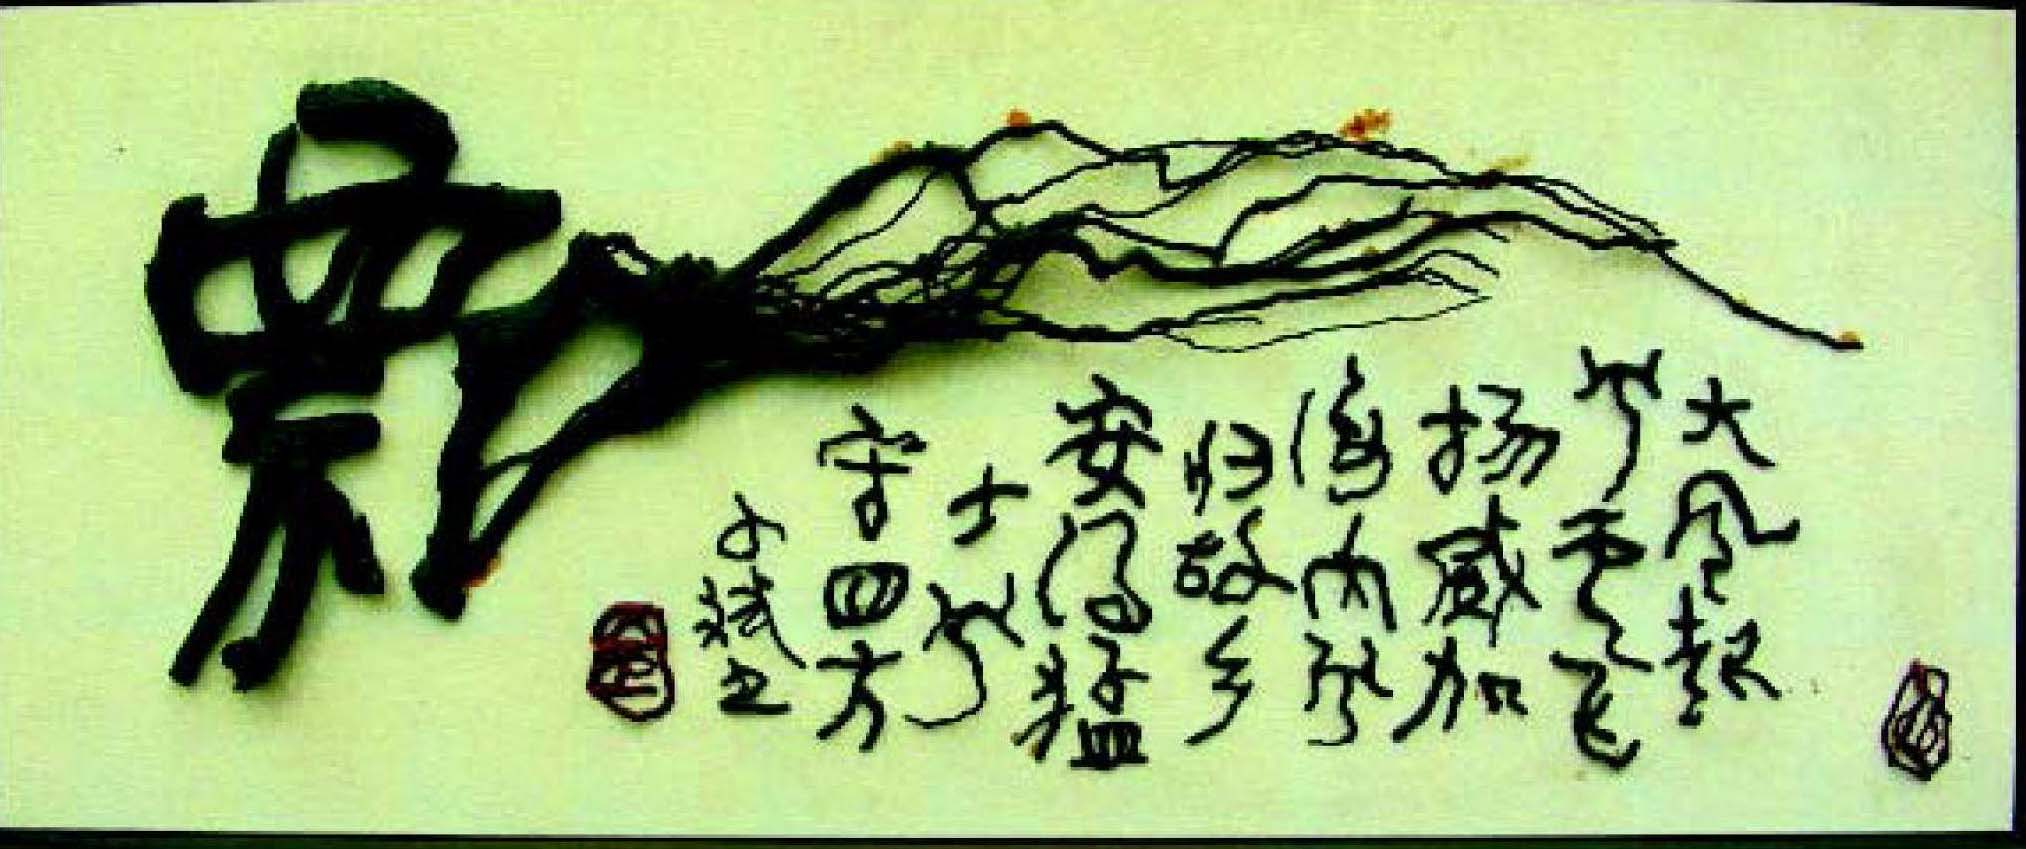 大风起
兮云飞
扬威加
海内兮
归故乡
安得猛
士兮
守四方